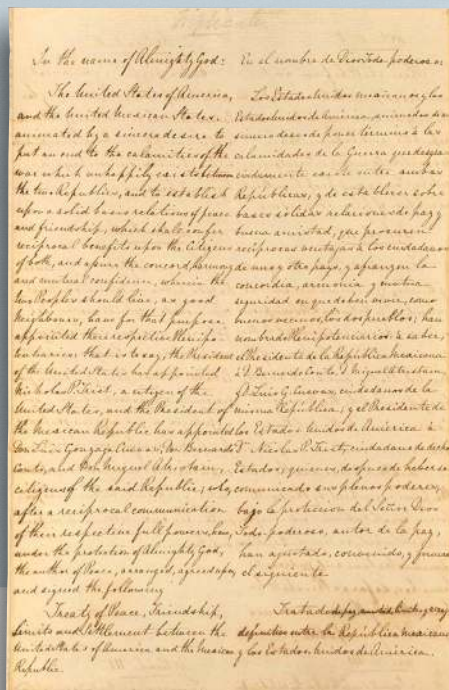 In the name of Almighty God:
The United States of America,
and the United Mexican States,
animated by a sincere desire to
put an end to the calamities of the
war which unhappily exists between
the two Republics, and to establish
upon a solid basis relations of peace
and friendship, which shall confer
reciprocal benefits upon the citizens
of both, and assure the concord, harmony
and mutual confidence, wherein the
two Peoples should live, as good
Neighbours, have for that purpose
appointed their respective Plenipo-
tentiaries: that is to say, the President
of the United States has appointed
Nicholas P. Trist, a citizen of the
United States, and the President of
the Mexican Republic has appointed
Don Luis Gonzaga Cuevas, Don Bernardo
Couto, and Don Miguel Atristain,
citizens of the said Republic; who,
after a reciprocal communication
of their respective full powers, have,
under the protection of Almighty God,
the author of Peace, arranged, agreed upon,
and signed the following
Treaty of Peace, Friendship,
Limits and Settlement between the
United States of America and the Mexican
Republic.
En el nombre de Dios Todo-poderoso:
Los Estados Unidos mexicanos y los
Estados Unidos de América, animados de un
sincero deseo de poner término a las
calamidades de la Guerra que desgra-
ciadamente existe entre ambas
Repúblicas, y de establecer sobre
bases sólidas relaciones de paz y
buena amistad, que procuren
recíprocas ventajas a los ciudadanos
de uno y otro pays, y afianzen la
concordia, armonía y mutua
seguridad en que deben vivir, como
buenos vecinos, los dos pueblos; han
nombrado Plenipotenciarios: a saber,
el Presidente de la República mexicana
a D. Bernardo Couto, D. Miguel Atristain,
y D. Luis G. Cuevas, ciudadanos de la
misma República; y el Presidente de
los Estados Unidos de América a
D. Nicolas P. Trist, ciudadano de dichos
Estados; quienes, después de haberse
comunicado sus plenos poderes,
bajo la protección del Señor Dios
Todo-poderoso, autor de la paz,
han ajustado, convenido, y firmado
el siguiente
Tratado
definitivo entre la República mexicana
y los Estados Unidos de América.